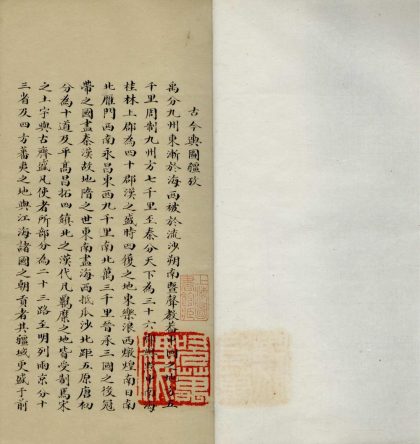 古今輿圖疆攷
禹分九州東漸於海西被於流沙朔南暨聲教蓋五
千里周制九州方七千里至秦分天下為三十六海
桂林上郡為四十郡漢之盛時四復之地東樂浪西燉煌南日南
北雁門西南永昌東西九千里南北萬三千里晉承三國之後冠
帶之國盡秦漢故地隋之世東南盡海西抵瓜沙北距五原唐初
分為十道及平高昌拓四鎮北之漢代凡羈縻之地皆受制焉宋
之土宇與古齊盛凡使者所部分為二十三路至明列兩京分十
三省及四方蕃夷之地與江海諸國之朝貢者其疆域更盛于前